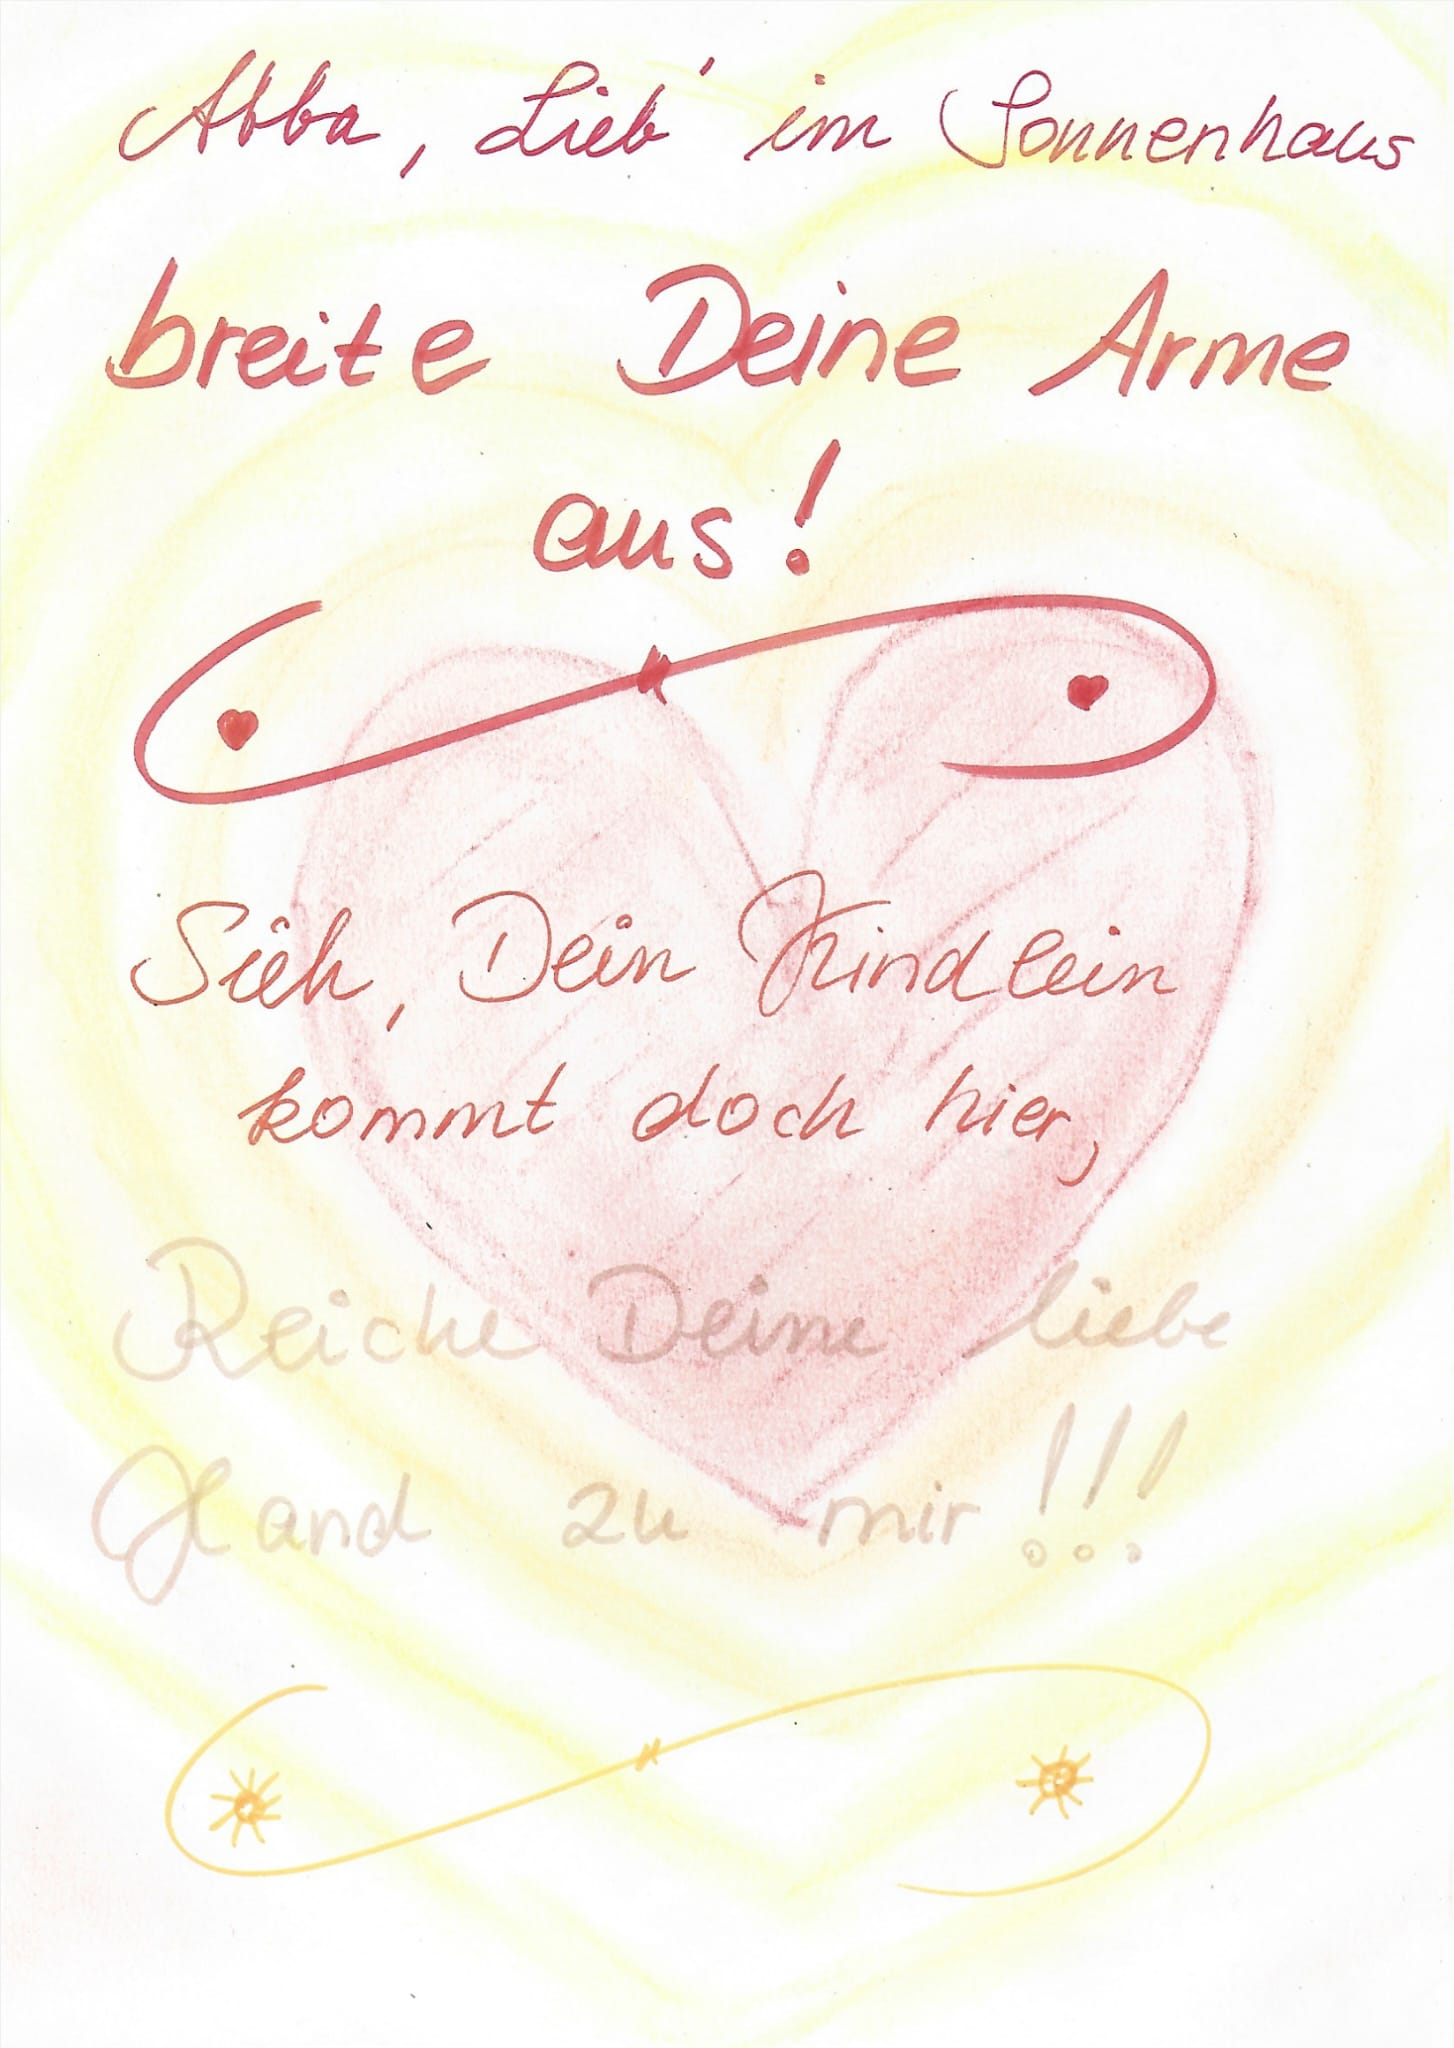 Abba, Lieb' im Sonnenhaus
breite Deine Arme
aus!
Sieh, Dein Kindlein
kommt doch hier,
Reiche Deine liebe
Hand zu mir!!!